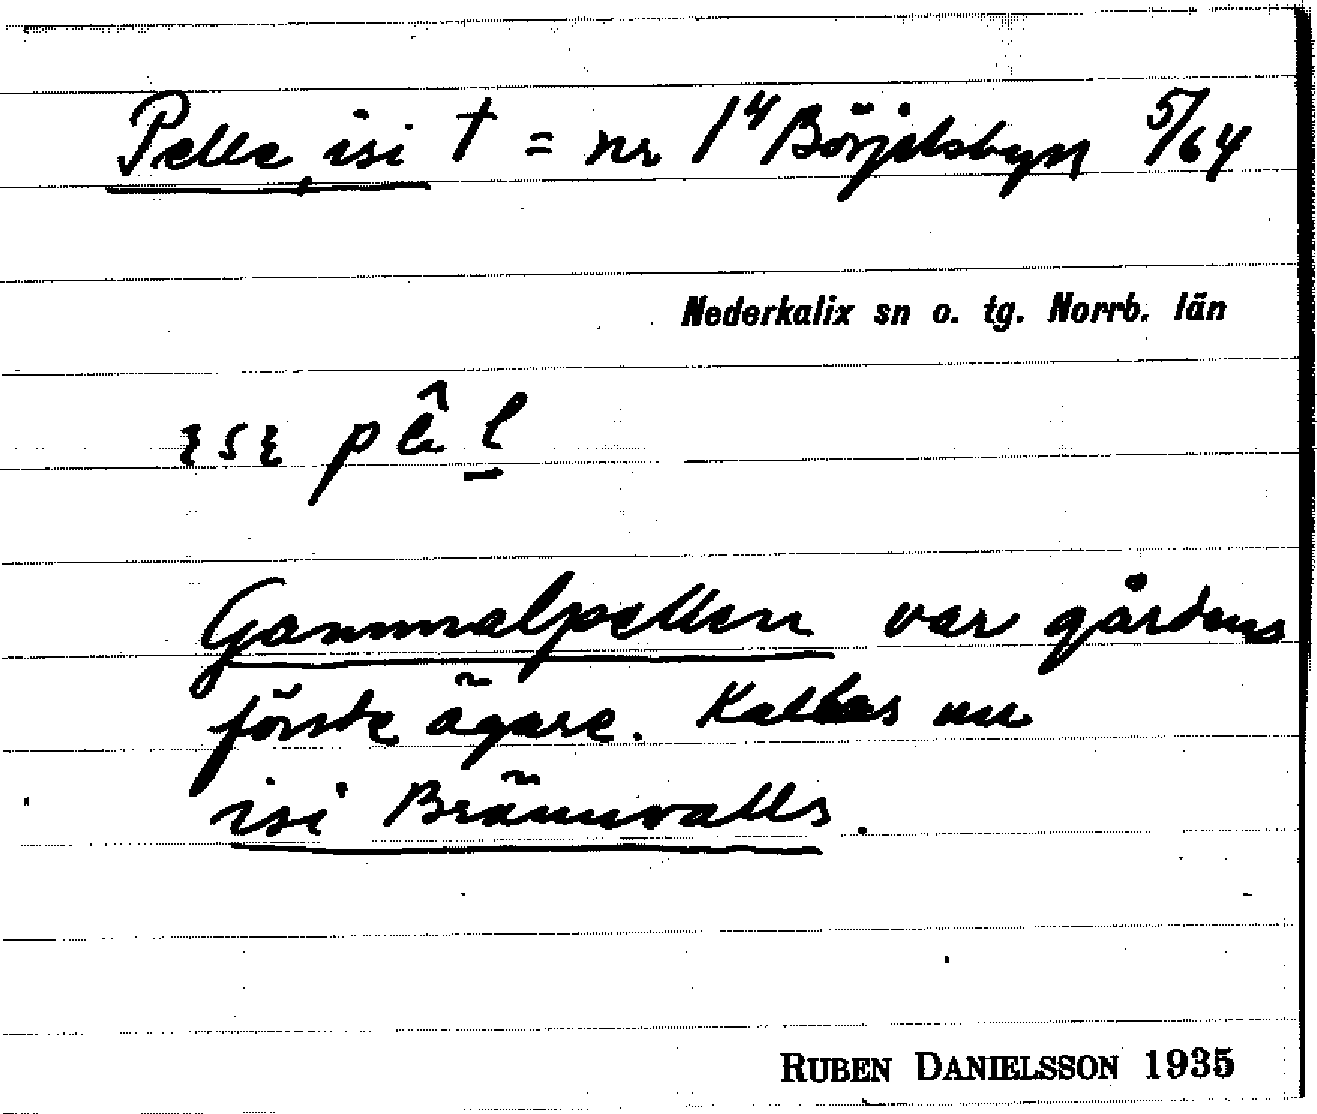 Pelle, isi † = nr 1⁴ Börjelsbyn 5/64
Nederkalix sn o. tg. Norrb. län
Gammalpellen var gårdens
förste ägare. Kallas nu
isi Brännvalls.
RUBEN DANIELSSON 1935